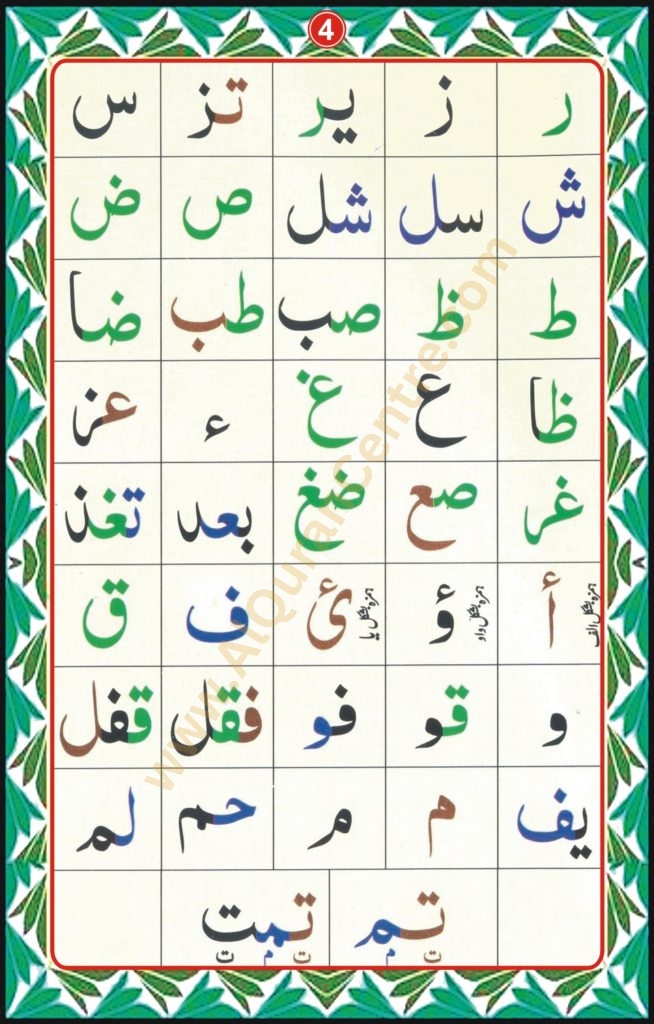 4
ر ز یر تز س
ش سل شل ص ض
ط ظ صب طب ضا
ظا ع غ ء عز
غر صع ضغ بعد تغذ
أ ہمزہ بشکل الف ؤ ہمزہ بشکل واو ئ ہمزہ بشکل یا ف ق
و قو فو فقل قفل
یف م م حم لم
تم تمت
ت م ت م ت
www.AlQuranCentre.com